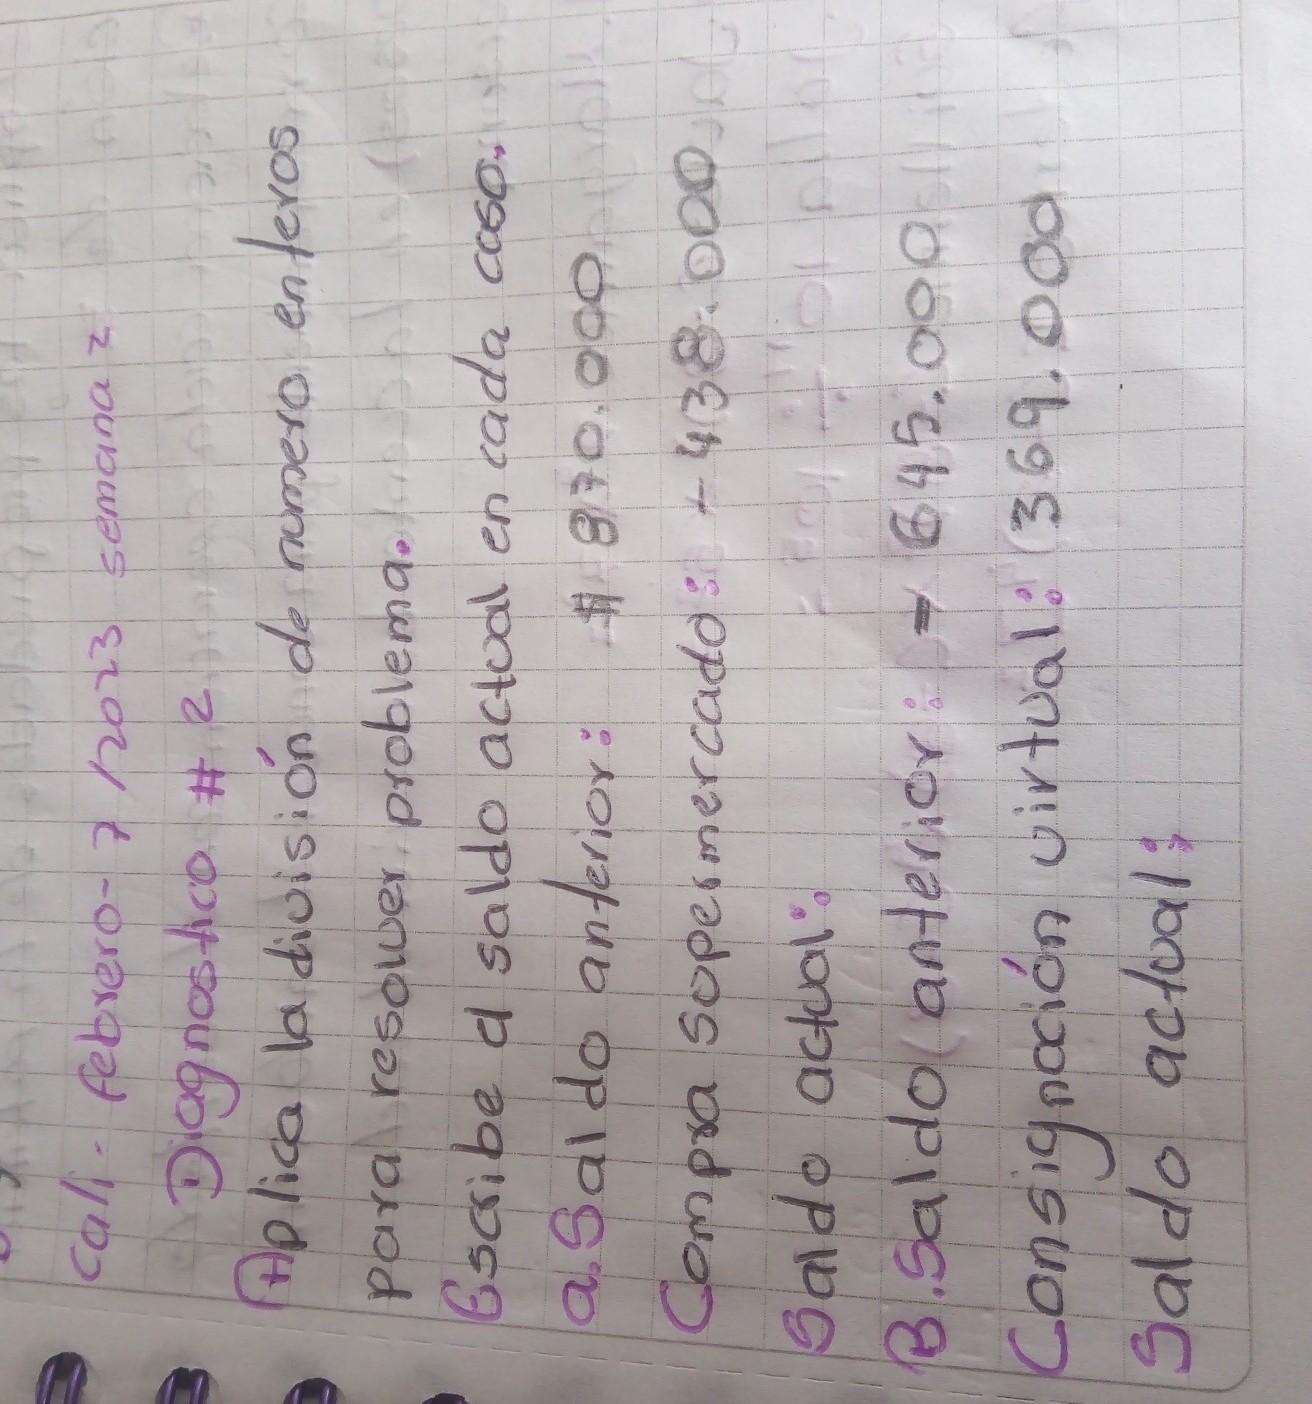 Cali - febrero - 7 / 2023 semana 2
Diagnostico # 2
Aplica la división de numero enferos
para resolver problema.
Escribe el saldo actual en cada caso.
a. Saldo anterior: # 870.000
Compra supermercado: - 438.000
Saldo actual:
B. Saldo anterior: - 645.000
Consignación virtual: 369.000
Saldo actual: